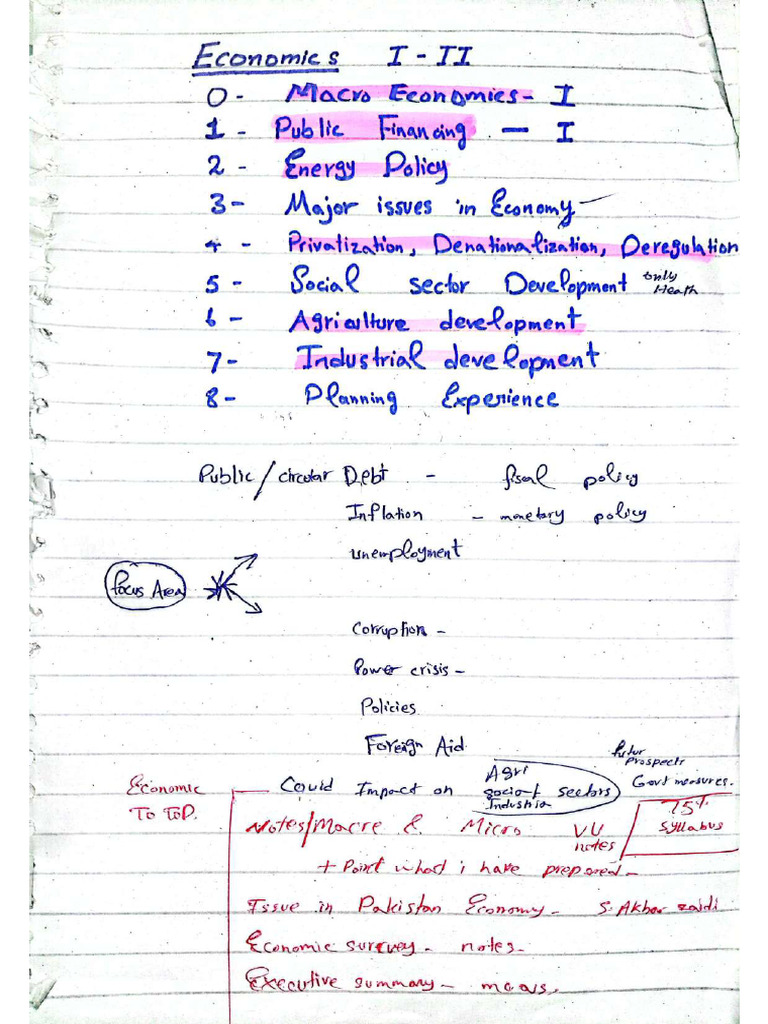 Economics I - II
0 - Macro Economics - I
1 - Public Financing — I
2 - Energy Policy
3 - Major issues in Economy -
4 - Privatization, Denationalization, Deregulation
5 - Social sector Development only Heath
6 - Agriculture development
7 - Industrial development
8 - Planning Experience
Public / circular Debt - fisal policy
Inflation - monetary policy
unemployment
Focus Area
Corruption -
Power crisis -
Policies
Foreign Aid
futur prospects
Covid Impact on Agri social sectors Industrial
Govt measures.
Economic To ToP.
75% syllabus
Notes/Macro & Micro VU notes
+ Point what i have prepared -
Issue in Pakistan Economy - S. Akbar zaidi
Economic survey - notes -
Executive summary -